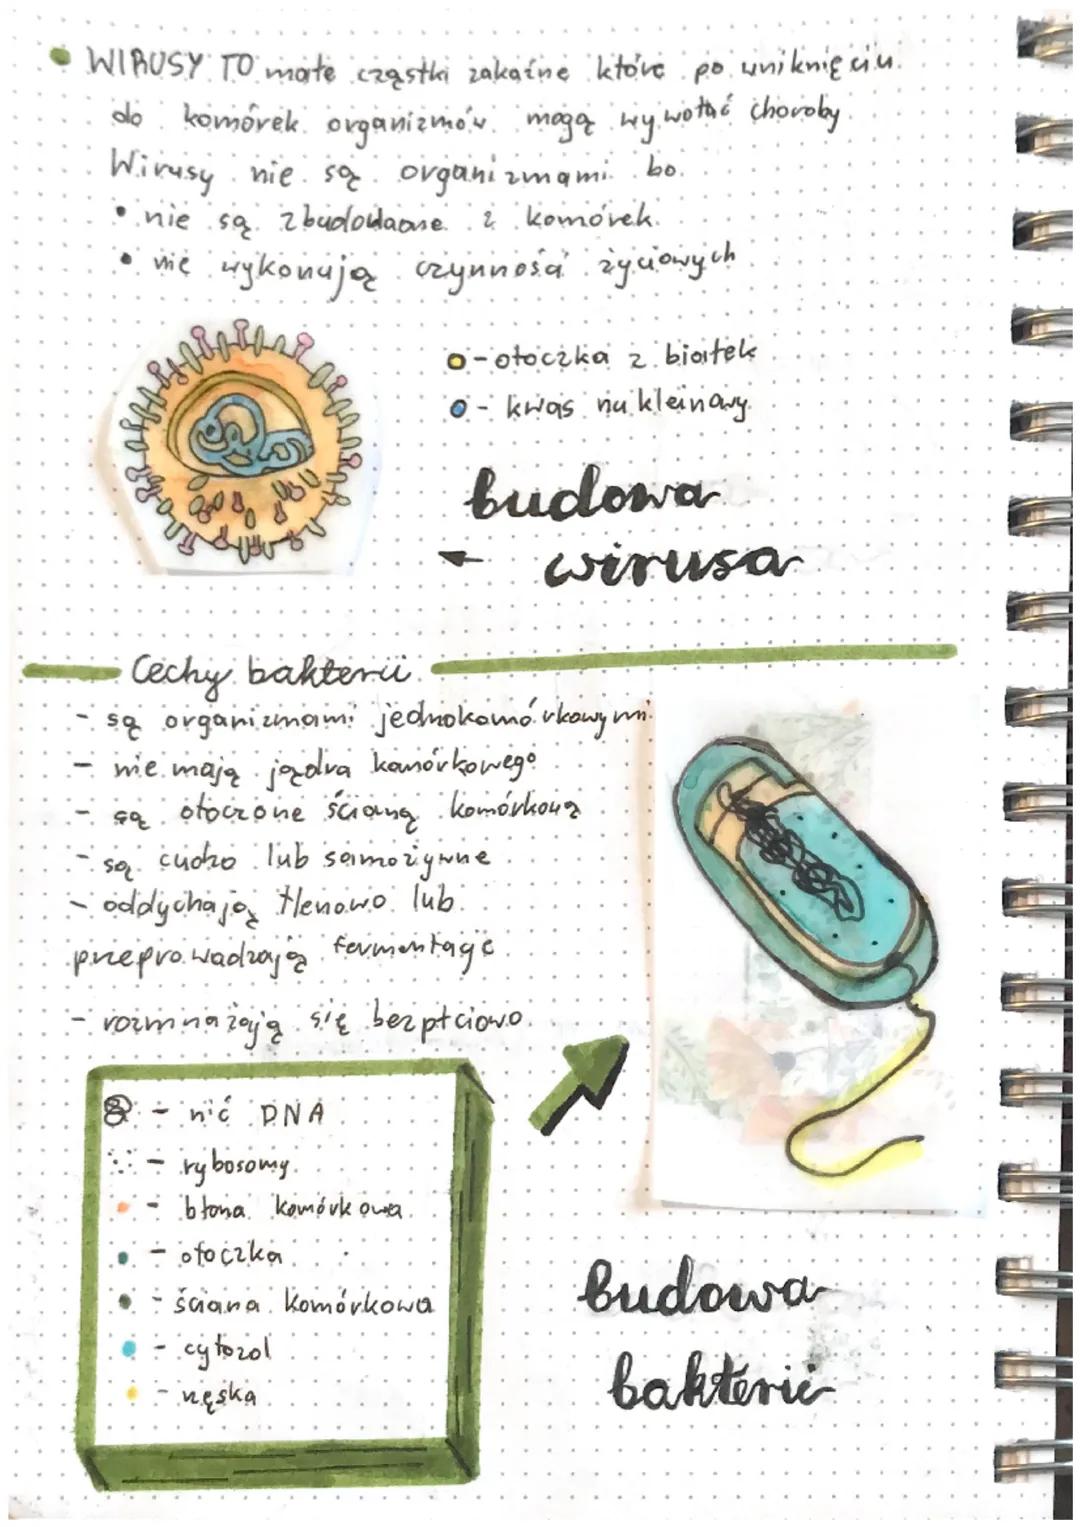 WIRUSY TO małe cząstki zakaźne które po wniknięciu
do komórek organizmów mogą wywołać choroby
Wirusy nie są organizmami bo
• nie są zbudowane z komórek
• nie wykonują czynności życiowych
- otoczka z białek
- kwas nukleinowy
budowa
wirusa
Cechy bakterii
- są organizmami jednokomórkowymi
- nie mają jądra komórkowego
- są otoczone ścianą komórkową
- są cudzo lub samożywne
- oddychają tlenowo lub
przeprowadzają fermentację
- rozmnażają się bezpłciowo
- nić DNA
- rybosomy
- błona komórkowa
- otoczka
- ściana komórkowa
- cytozol
- rzęska
budowa
bakterii